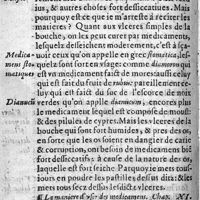 ius, & autres choses fort dessiccatiues. Mais
pourquoy est-ce que ie m'arreste à reciter les
matieres? Quant aux vlceres simples de la
bouche, on les peut curer par medicamens,
lesquels desseichent moderement, c'est à sça-
uoir ceux qu'on appelle en grec stomatica, les-
quels sont fort en vsage: comme diamoron qui
est vn medicament faict de mores: aussi celuy
qui est fait du fruit de rubus: pareillement ce-
luy qui est faict du suc de l'escorce de noix
verdes qu'on apelle diacarion, encores plus
le medicament lequel est composé de moust, &
des pilules de cypres. Mais les vlceres de la
bouche qui sont fort humides, & pres des os,
en sorte que les os soient en dangier de carie
& corruption, ont besoin de medicamens biē
fort dessiccatifs: à cause de la nature des os,
laquelle est fort seiche. Parquoy ie mets tous-
iours en poudre les pastilles dessus dits: &
mets tous secz dessus lesdits vlceres.
Medica-
mens sto-
matiques
¶ La maniere d'vser des medicamens. Chap. XI.